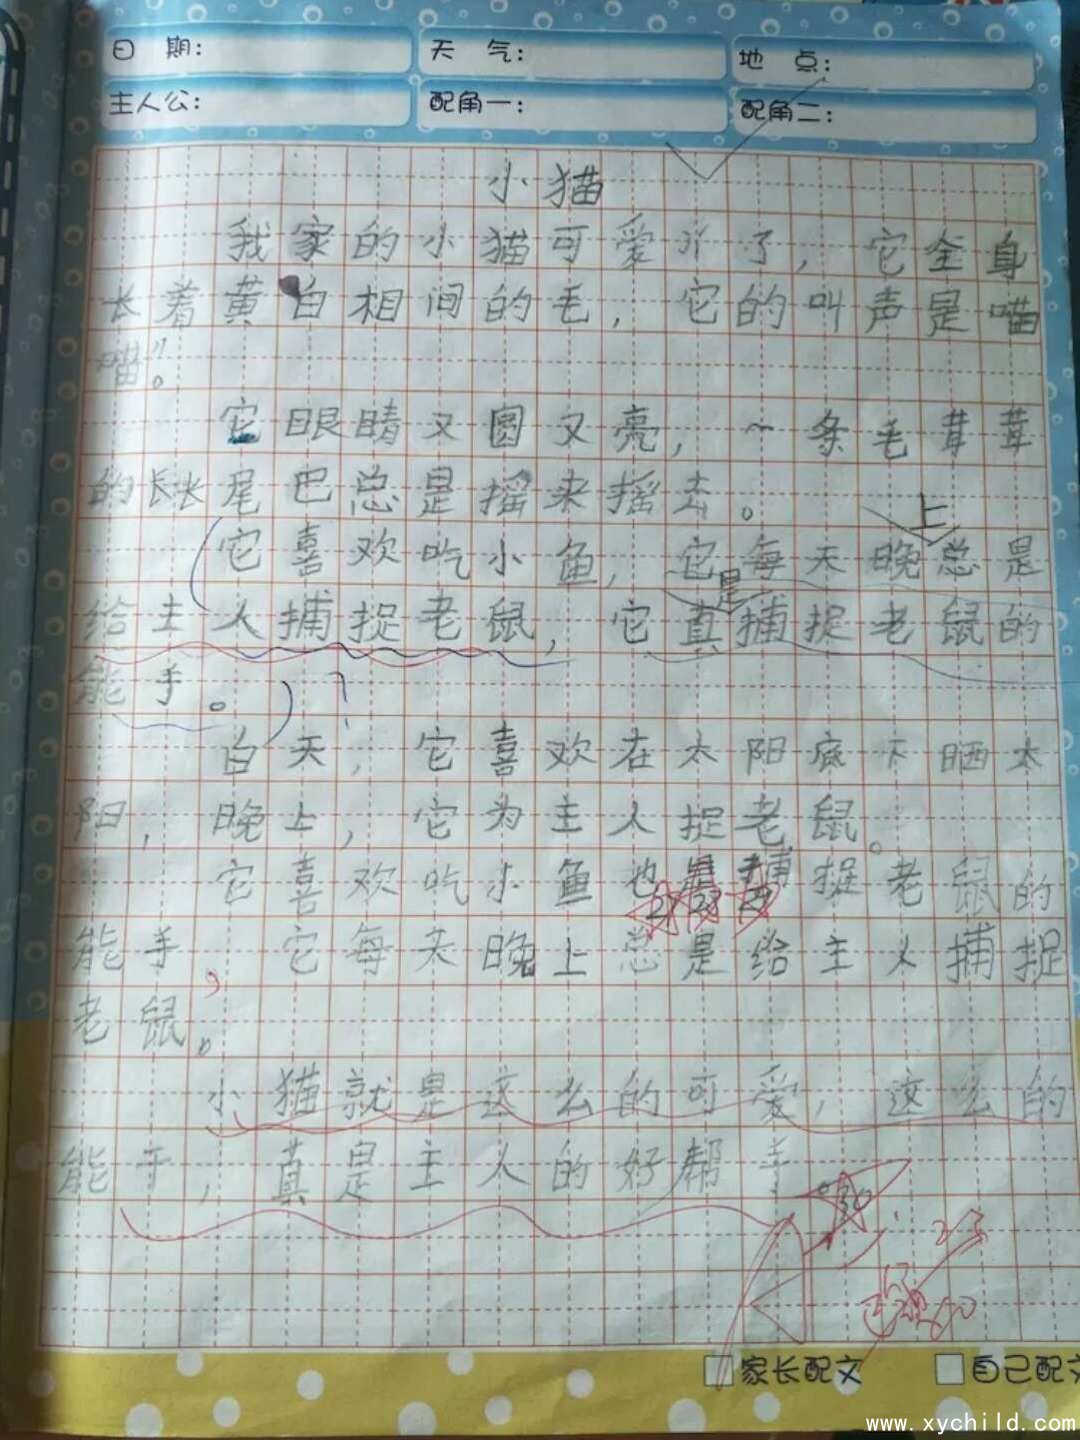 日 期： 天 气： 地 点：
主人公： 配角一： 配角二：
小猫
我家的小猫可爱了，它全身
长着黄白相间的毛，它的叫声是喵
喵”。
它眼睛又圆又亮，一条毛茸茸
的长长尾巴总是摇来摇去。
上
它喜欢吃小鱼，它每天晚总是
是
给主人捕捉老鼠，它真捕捉老鼠的
能手。
白天，它喜欢在太阳底下晒太
阳，晚上，它为主人捉老鼠。
它喜欢吃小鱼也是捕捉老鼠的
能手，它每天晚上总是给主人捕捉
老鼠。
小猫就是这么的可爱，这么的
能干，真是主人的好帮手。
家长配文 自己配文
www.xychild.com